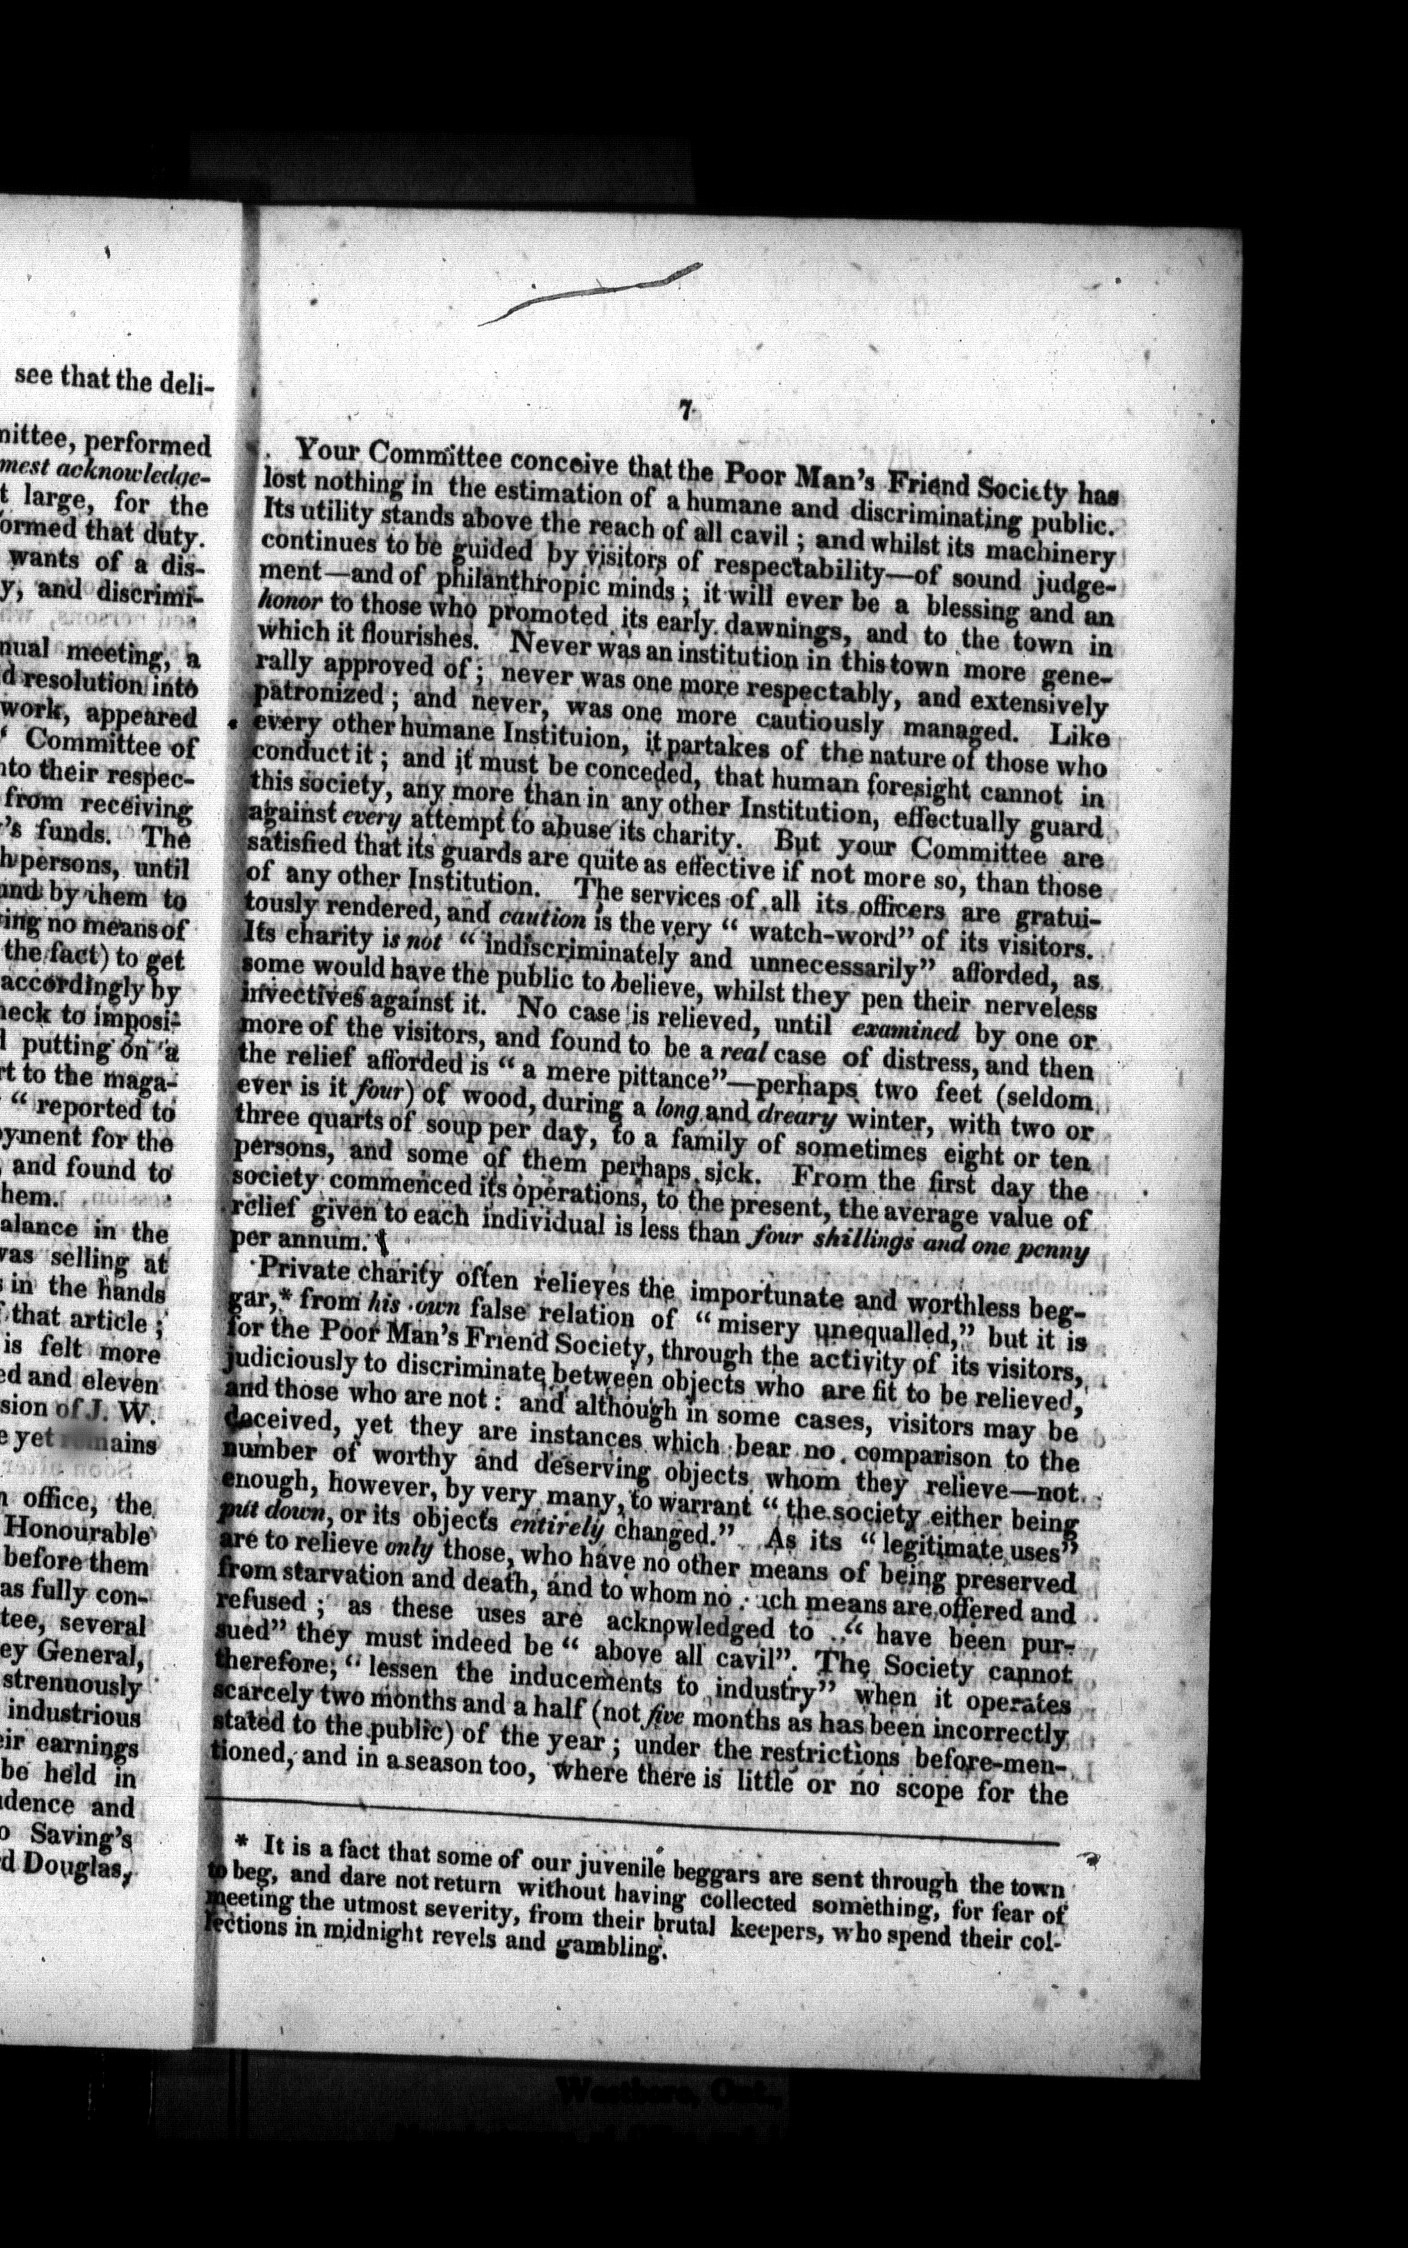 see that the deli-
mittee, performed
mest acknowledge-
t large, for the
ormed that duty.
wants of a dis-
y, and discrimi-
nual meeting, a
d resolution into
work, appeared
Committee of
nto their respec-
from receiving
's funds. The
h persons, until
and by them to
ing no means of
the fact) to get
accordingly by
heck to imposi-
l putting on a
rt to the maga-
" reported to
oyment for the
, and found to
hem.
alance in the
was selling at
s in the hands
f that article;
is felt more
ed and eleven
sion of J. W.
e yet remains
n office, the
Honourable
before them
as fully con-
tee, several
ey General,
strenuously
industrious
eir earnings
be held in
dence and
o Saving's
d Douglas,
7
Your Committee conceive that the Poor Man's Friend Society has
lost nothing in the estimation of a humane and discriminating public.
Its utility stands above the reach of all cavil; and whilst its machinery
continues to be guided by visitors of respectability—of sound judge-
ment—and of philanthropic minds; it will ever be a blessing and an
honor to those who promoted its early dawnings, and to the town in
which it flourishes. Never was an institution in this town more gene-
rally approved of; never was one more respectably, and extensively
patronized; and never, was one more cautiously managed. Like
every other humane Instituion, it partakes of the nature of those who
conduct it; and it must be conceded, that human foresight cannot in
this society, any more than in any other Institution, effectually guard
against every attempt to abuse its charity. But your Committee are
satisfied that its guards are quite as effective if not more so, than those
of any other Institution. The services of all its officers are gratui-
tously rendered, and caution is the very " watch-word" of its visitors.
Its charity is not " indiscriminately and unnecessarily" afforded, as
some would have the public to believe, whilst they pen their nerveless
invectives against it. No case is relieved, until examined by one or
more of the visitors, and found to be a real case of distress, and then
the relief afforded is " a mere pittance"—perhaps two feet (seldom
ever is it four) of wood, during a long and dreary winter, with two or
three quarts of soup per day, to a family of sometimes eight or ten
persons, and some of them perhaps sick. From the first day the
society commenced its operations, to the present, the average value of
relief given to each individual is less than four shillings and one penny
per annum.
Private charity often relieves the importunate and worthless beg-
gar,* from his own false relation of "misery unequalled," but it is
for the Poor Man's Friend Society, through the activity of its visitors,
judiciously to discriminate between objects who are fit to be relieved,
and those who are not: and although in some cases, visitors may be
deceived, yet they are instances which bear no comparison to the
number of worthy and deserving objects whom they relieve—not
enough, however, by very many, to warrant " the society either being
put down, or its objects entirely changed." As its "legitimate uses"
are to relieve only those, who have no other means of being preserved
from starvation and death, and to whom no uch means are offered and
refused; as these uses are acknowledged to " have been pur-
sued" they must indeed be " above all cavil". The Society cannot
therefore, " lessen the inducements to industry" when it operates
scarcely two months and a half (not five months as has been incorrectly
stated to the public) of the year; under the restrictions before-men-
tioned, and in a season too, where there is little or no scope for the
* It is a fact that some of our juvenile beggars are sent through the town
to beg, and dare not return without having collected something, for fear of
meeting the utmost severity, from their brutal keepers, who spend their col-
lections in midnight revels and gambling.
Westboro, Ont.,